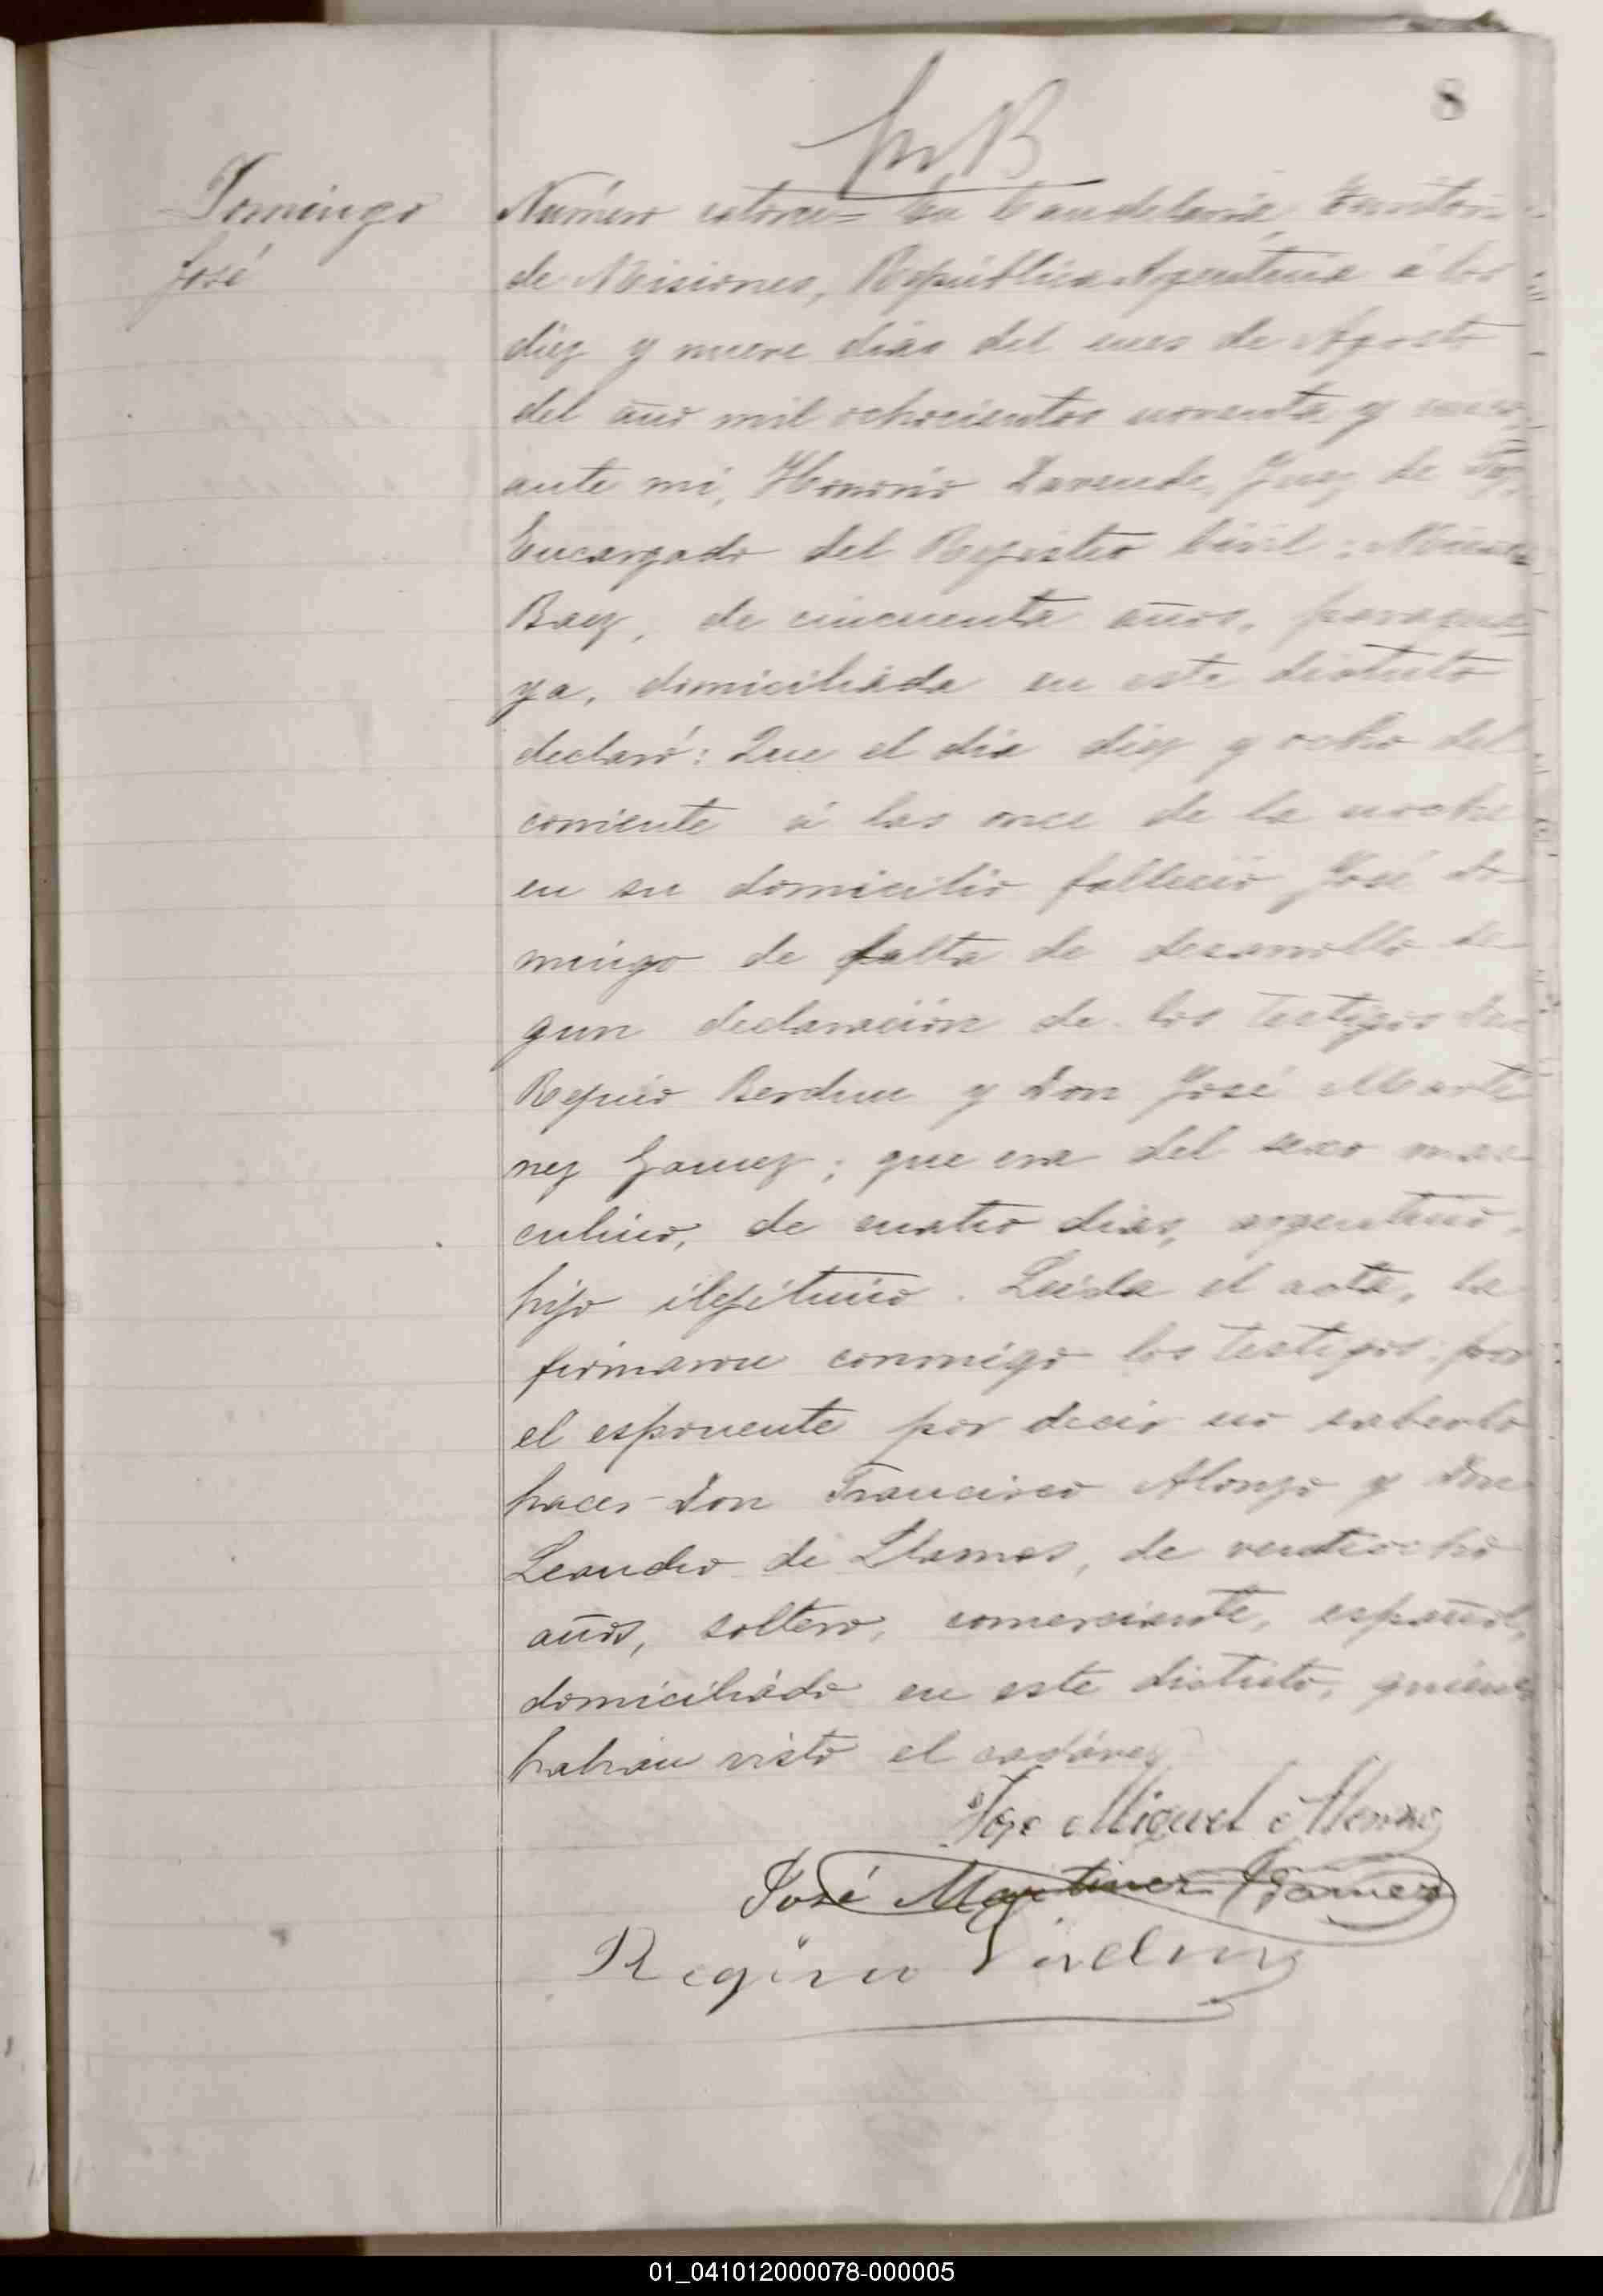 8
Domingo
José
Número catorce= En Candelaria, territorio
de Misiones, República Argentina á los
diez y nueve dias del mes de Agosto
del año mil ochocientos noventa y
ante mi, Honorio Juez de Paz,
Encargado del Registro Civil:
Baez, de cincuenta años, paragua-
ya, domiciliada en este distrito
declaró: Que el dia diez y ocho del
corriente á las once de la noche
en su domicilio falleció José Do-
mingo de falta de desarrollo se-
gun declaración de los testigos Don
Regino Berdun y Don José Marti
nez Gamez; que era del sexo mas-
culino, de cuatro dias, argentino,
hijo ilegitimo. Leida el acta, la
firmaron conmigo los testigos; por
el esponente por decir no saberlo
hacer Don Francisco Alonzo y Don
Leandro de Llamas, de ventiocho
años, soltero, comerciante, español,
domiciliádo en este distrito, quienes
habian visto el cadáver
José Miguel
José Martinez Gamez
Regino Virdun
01_041012000078-000005